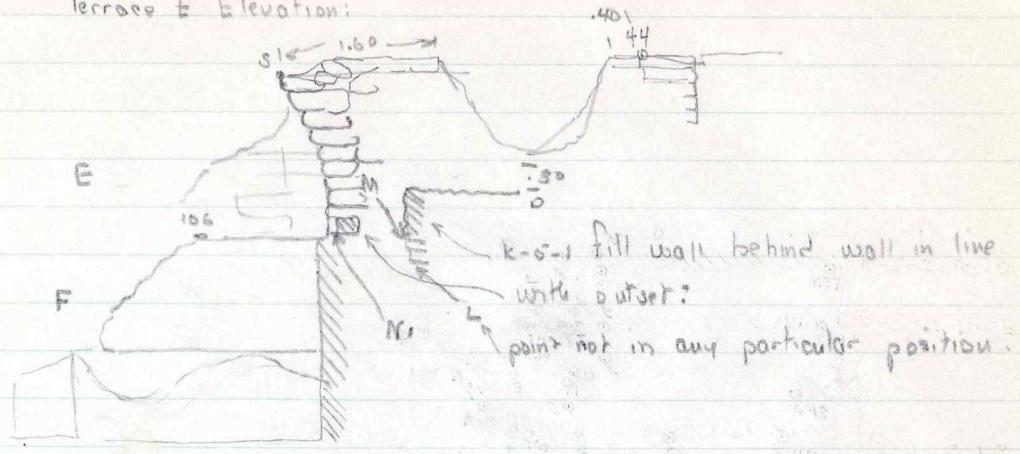 Terrace E Elevation:
.401
44
1.60
S
E
.30
D
M
106
k-5-1 fill wall behind wall in line
with outset:
F
L
N1
point not in any particular position.